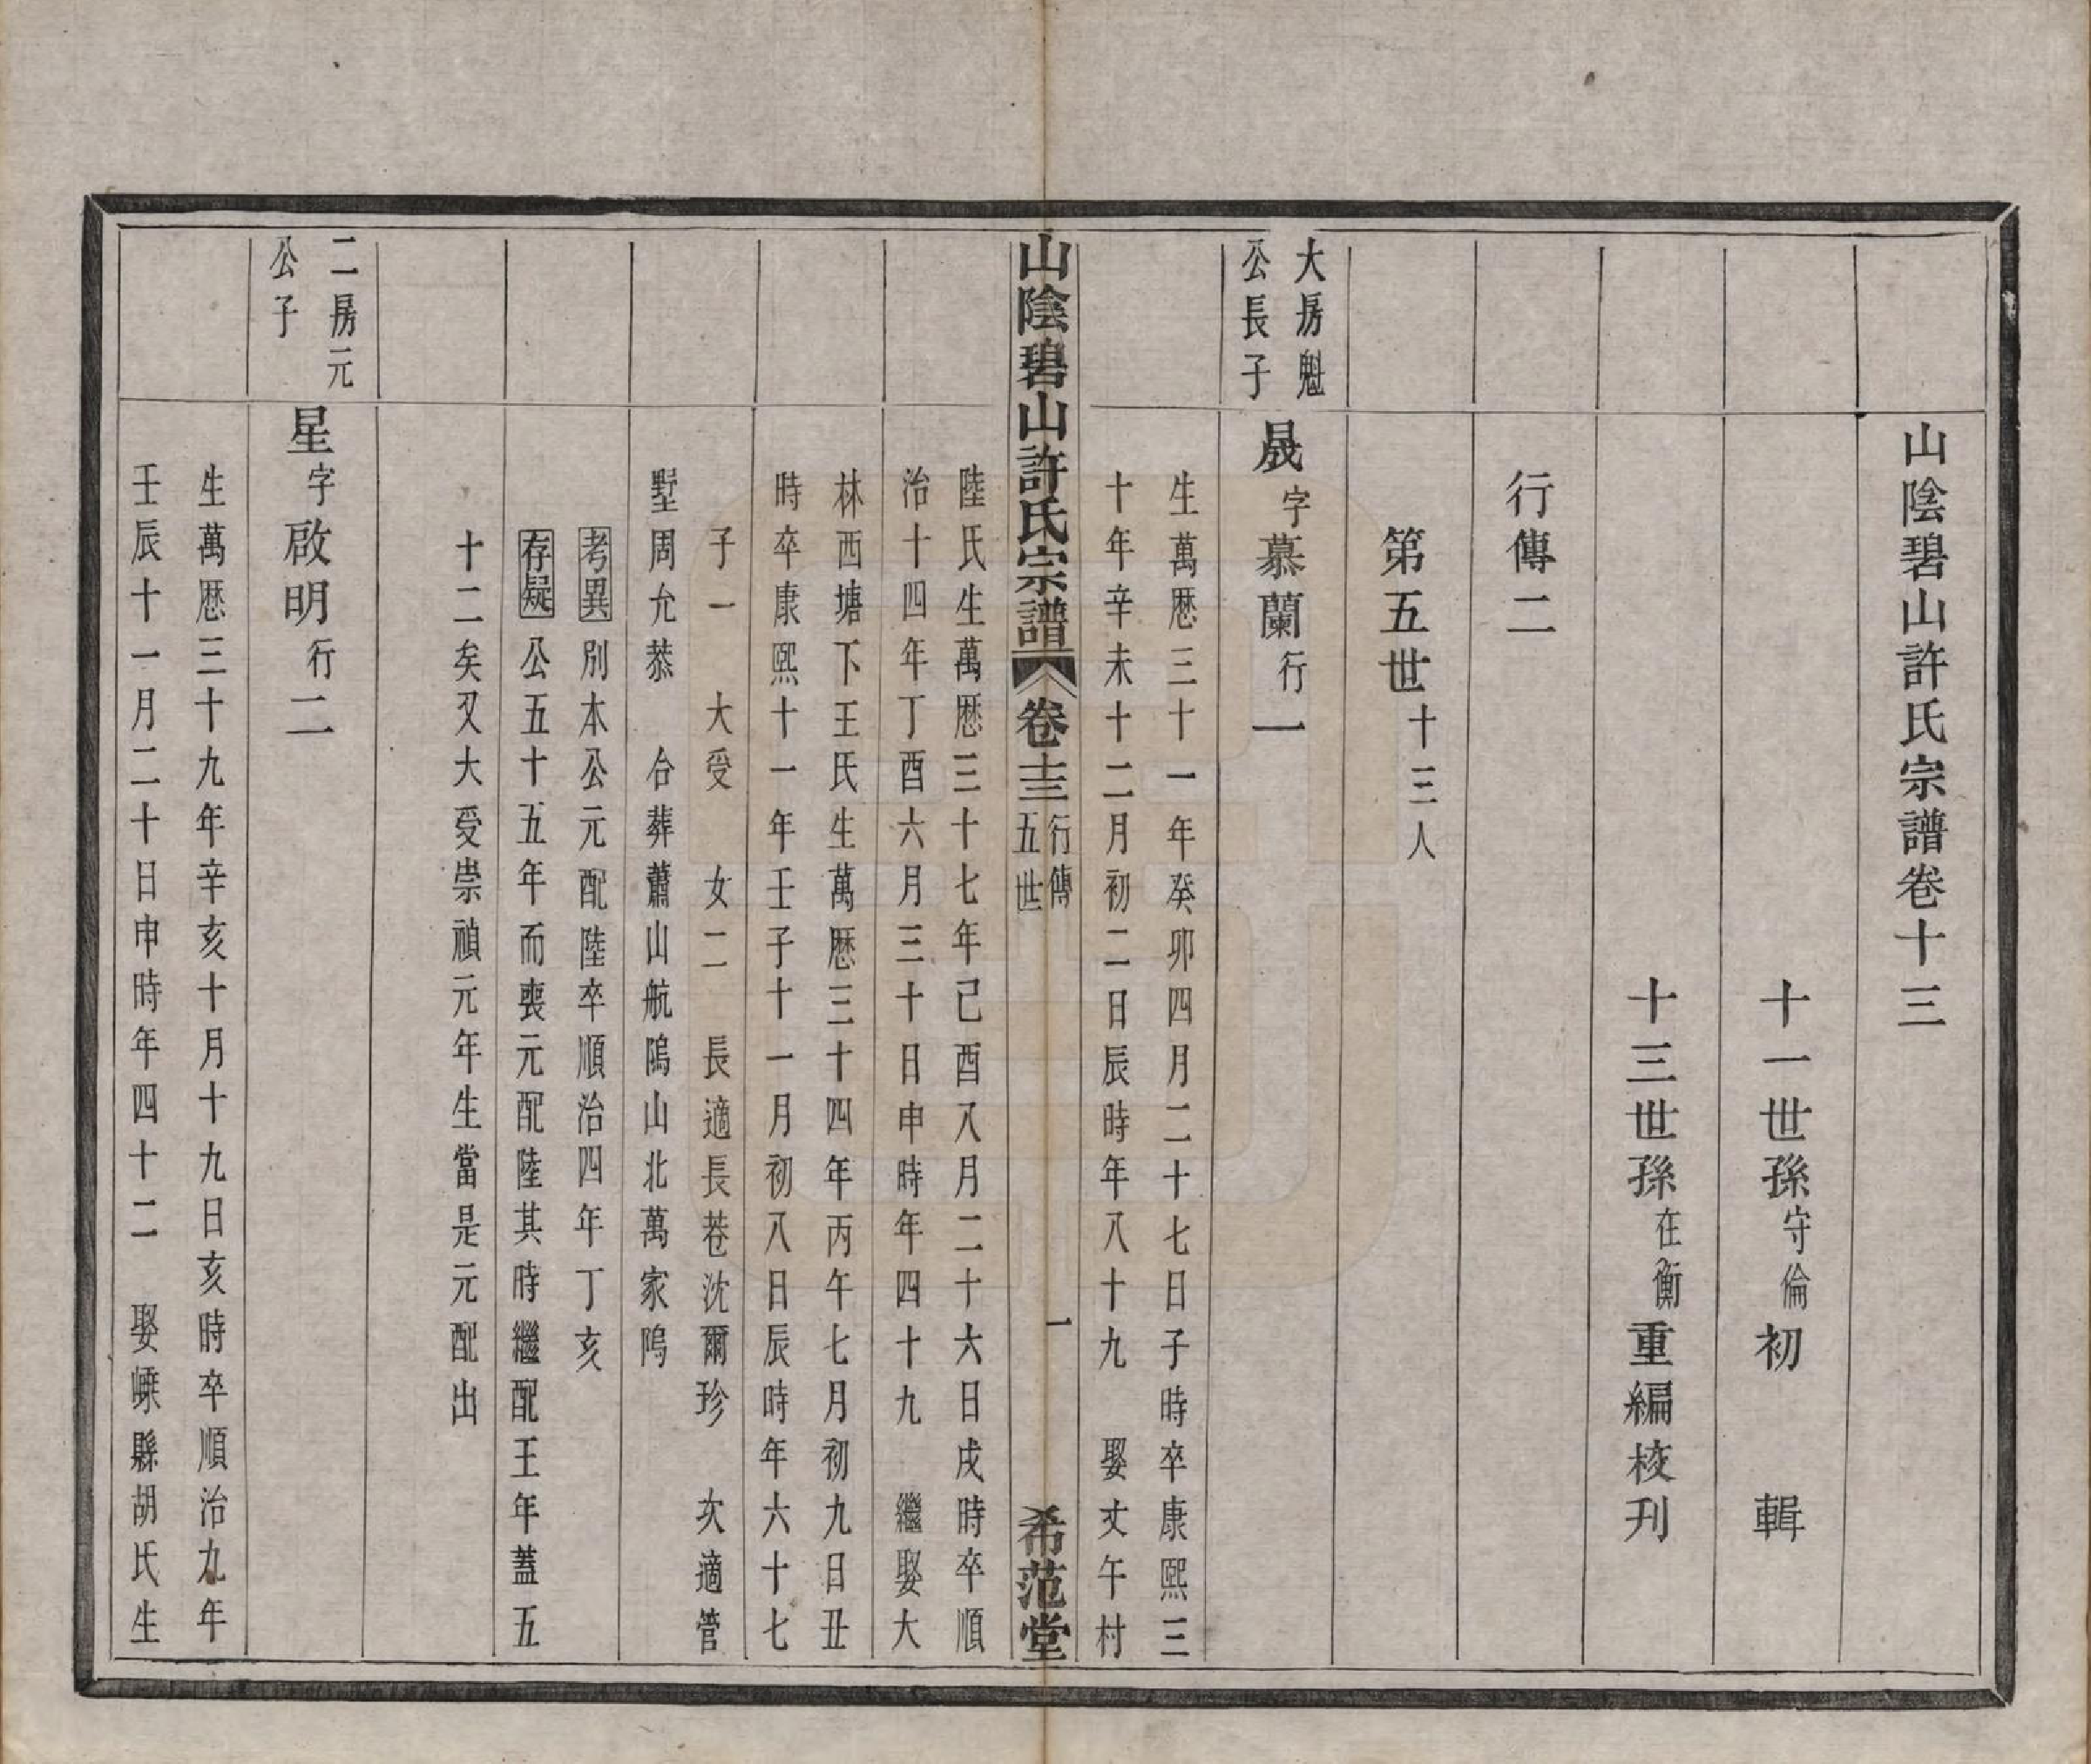 山陰碧山許氏宗譜卷十三
十一世孫守倫初　輯
十三世孫在衡重編校刊
行傳二
第五世十三人
大房魁
公長子
晟字慕蘭行一
生萬厯三十一年癸卯四月二十七日子時卒康熙三
十年辛未十二月初二日辰時年八十九　娶丈午村
山陰碧山許氏宗譜　卷十三　行傳　五世　一　希范堂
陸氏生萬厯三十七年己酉八月二十六日戌時卒順
治十四年丁酉六月三十日申時年四十九　繼娶大
林西塘下王氏生萬厯三十四年丙午七月初九日丑
時卒康熙十一年壬子十一月初八日辰時年六十七
子一　大受　女二　長適長巷沈爾珍　次適管
墅周允恭　合葬蕭山航隖山北萬家隖
考異別本公元配陸卒順治四年丁亥
存疑公五十五年而喪元配陸其時繼配王年蓋五
十二矣又大受崇禎元年生當是元配出
二房元
公子
星字啟明行二
生萬厯三十九年辛亥十月十九日亥時卒順治九年
壬辰十一月二十日申時年四十二　娶嵊縣胡氏生